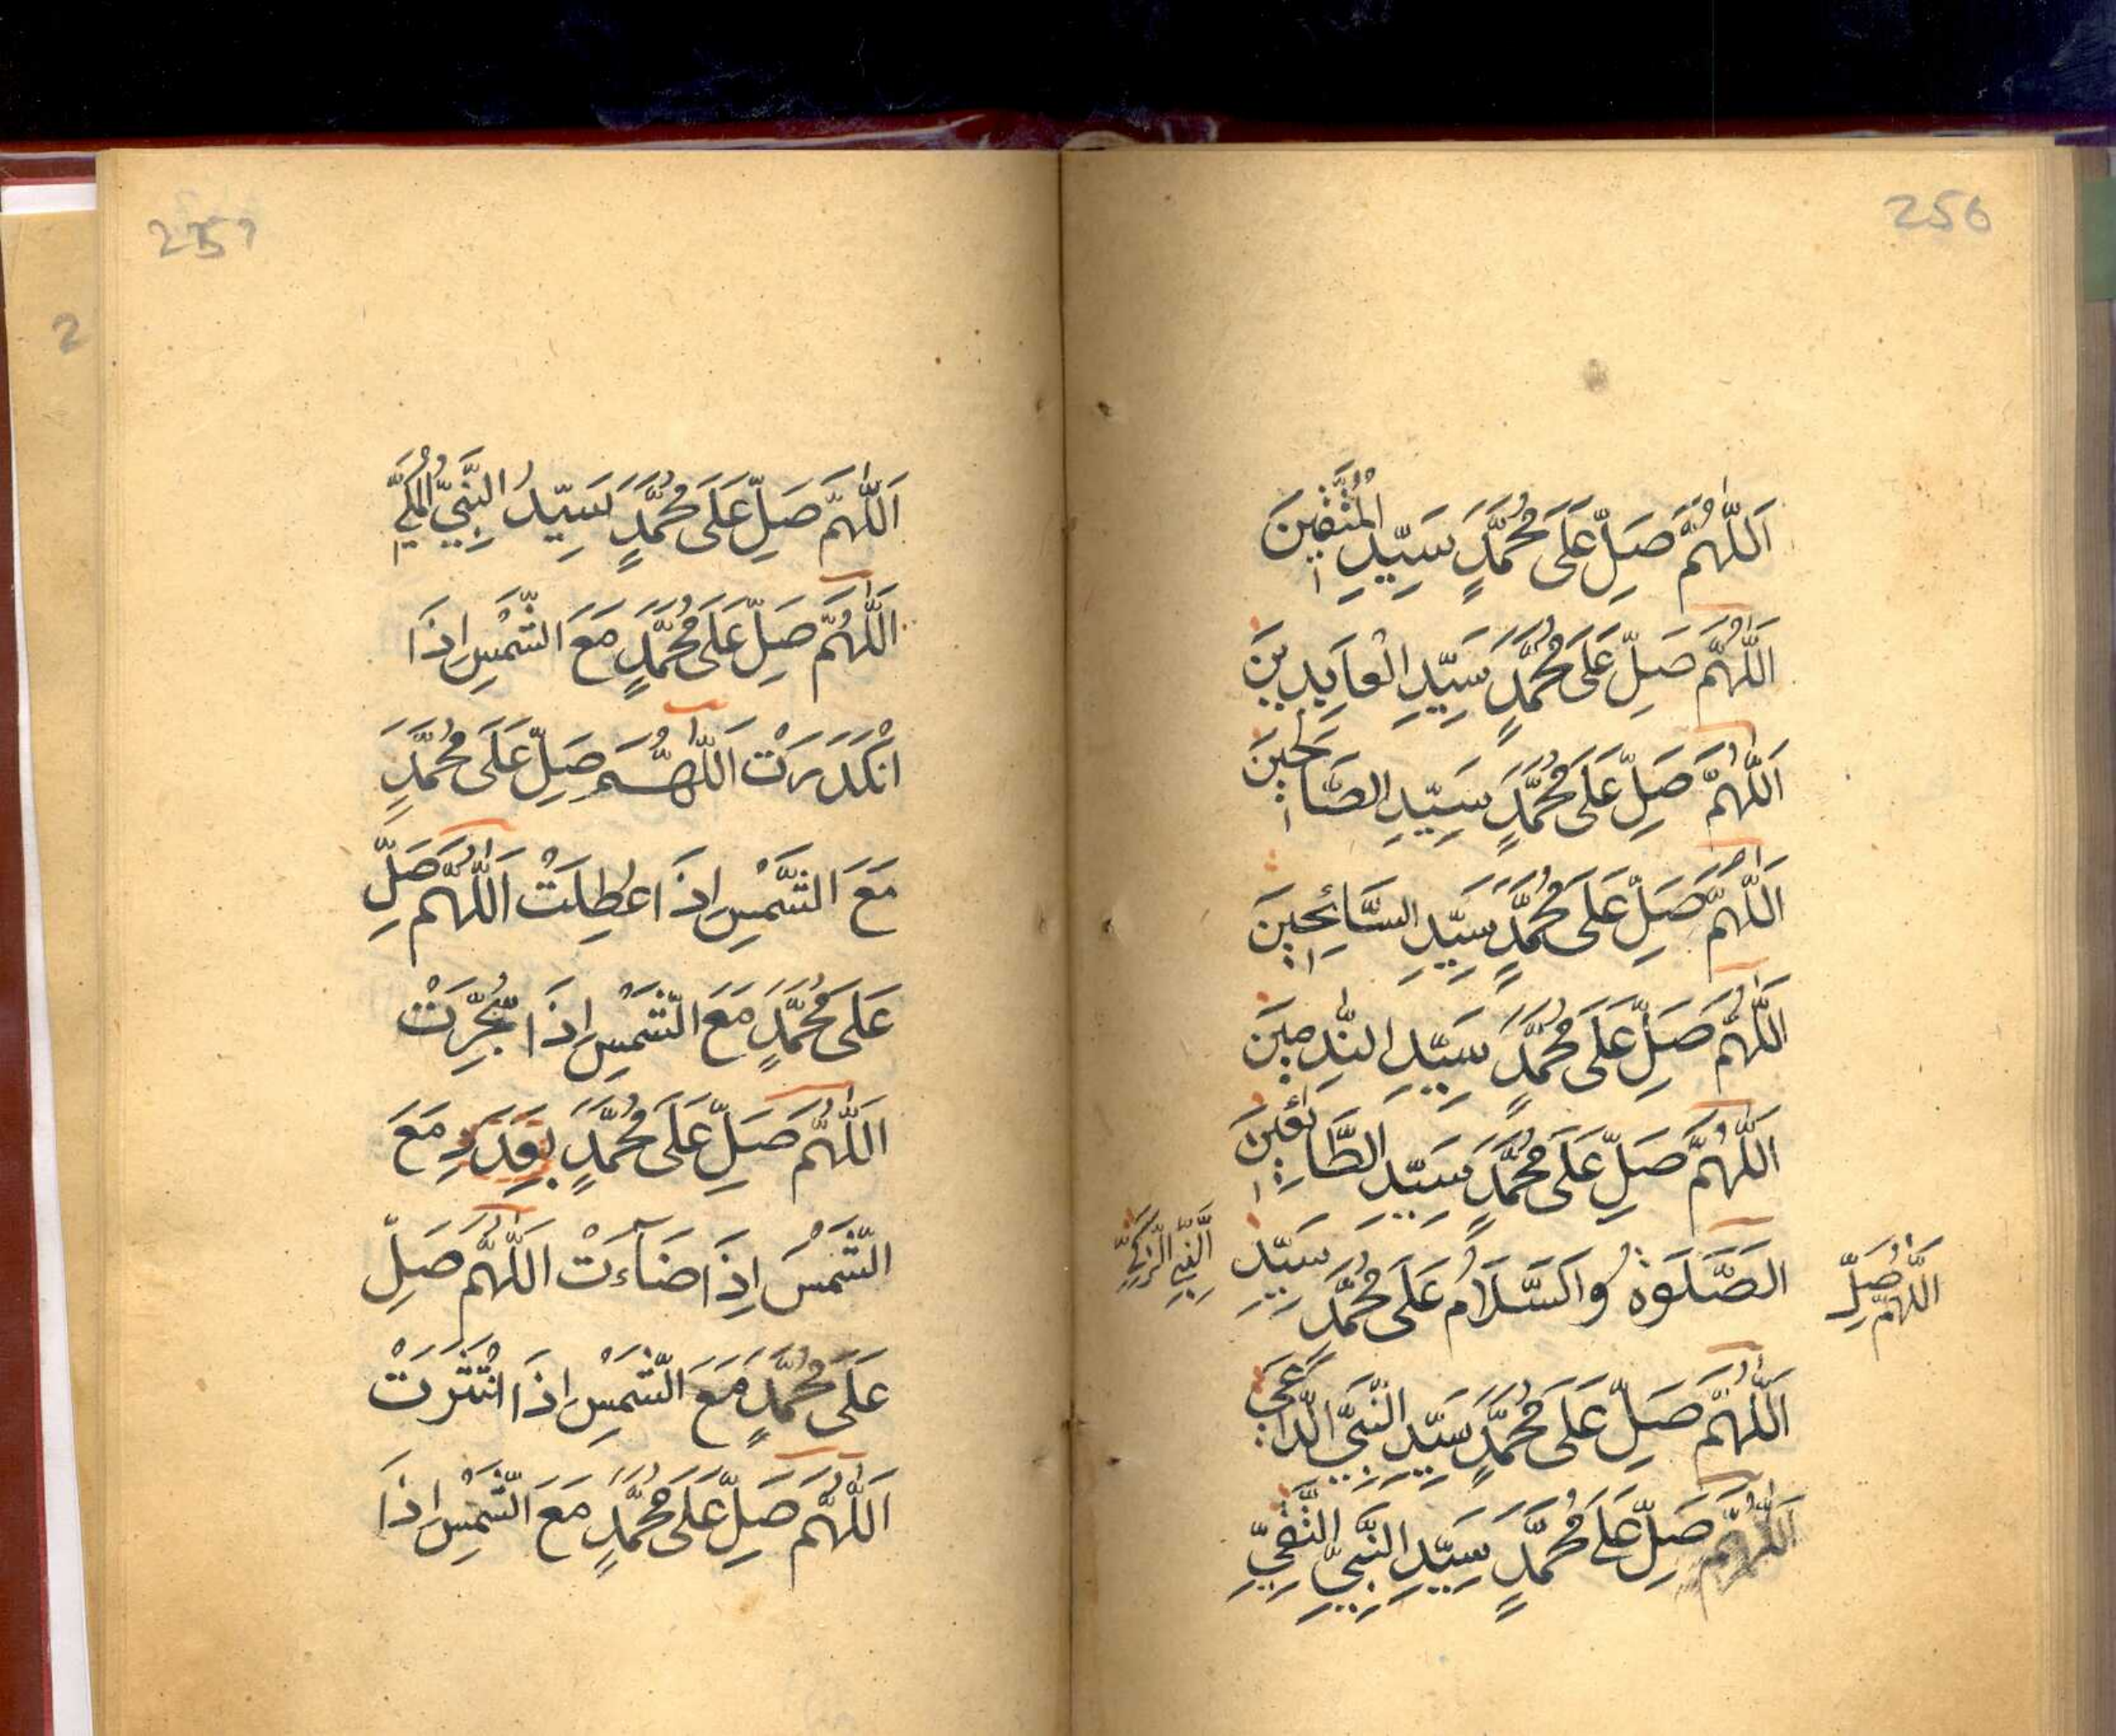 256
اَللّٰهُمَّ صَلِّ عَلَى مُحَمَّدٍ سَيِّدِ
اَللّٰهُمَّ صَلِّ عَلَى مُحَمَّدٍ سَيِّدِ الْعَابِدِينَ
اَللّٰهُمَّ صَلِّ عَلَى مُحَمَّدٍ سَيِّدِ الصَّالِحِينَ
اَللّٰهُمَّ صَلِّ عَلَى مُحَمَّدٍ سَيِّدِ السَّائِحِينَ
اَللّٰهُمَّ صَلِّ عَلَى مُحَمَّدٍ سَيِّدِ النّٰدِمِينَ
اَللّٰهُمَّ صَلِّ عَلَى مُحَمَّدٍ سَيِّدِ الطَّائِفِينَ
اَللّٰهُمَّ صَلِّ
الصَّلَوةُ وَالسَّلَامُ عَلَى مُحَمَّدٍ سَيِّدِ
النَّبِيِّ الزَّكِيِّ
اَللّٰهُمَّ صَلِّ عَلَى مُحَمَّدٍ سَيِّدِ النَّبِيِّ الدَّاعِي
اَللّٰهُمَّ صَلِّ عَلَى مُحَمَّدٍ سَيِّدِ النَّبِيِّ التَّقِيِّ
257
2
اَللّٰهُمَّ صَلِّ عَلَى مُحَمَّدٍ سَيِّدِ النَّبِيِّ الْمَكِّيِّ
اَللّٰهُمَّ صَلِّ عَلَى مُحَمَّدٍ مَعَ الشَّمْسِ اِذَا
انْكَدَرَتْ اَللّٰهُمَّ صَلِّ عَلَى مُحَمَّدٍ
مَعَ الشَّمْسِ اِذَا عُطِلَتْ اَللّٰهُمَّ صَلِّ
عَلَى مُحَمَّدٍ مَعَ الشَّمْسِ اِذَا
اَللّٰهُمَّ صَلِّ عَلَى مُحَمَّدٍ بِقَدَرِ مَعَ
الشَّمْسَ اِذَا ضَآءَتْ اَللّٰهُمَّ صَلِّ
عَلَى مُحَمَّدٍ مَعَ الشَّمْسِ اِذَا انْتَثَرَتْ
اَللّٰهُمَّ صَلِّ عَلَى مُحَمَّدٍ مَعَ الشَّمْسِ اِذَا